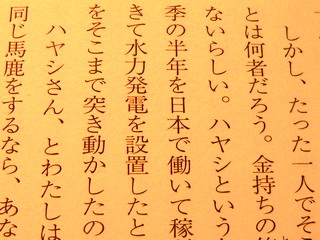 しかし、たった一人でそこ
とは何者だろう。金持ちの
ないらしい。ハヤシという
季の半年を日本で働いて稼
きて水力発電を設置したと
をそこまで突き動かしたの
ハヤシさん、とわたしは
同じ馬鹿をするなら、あな